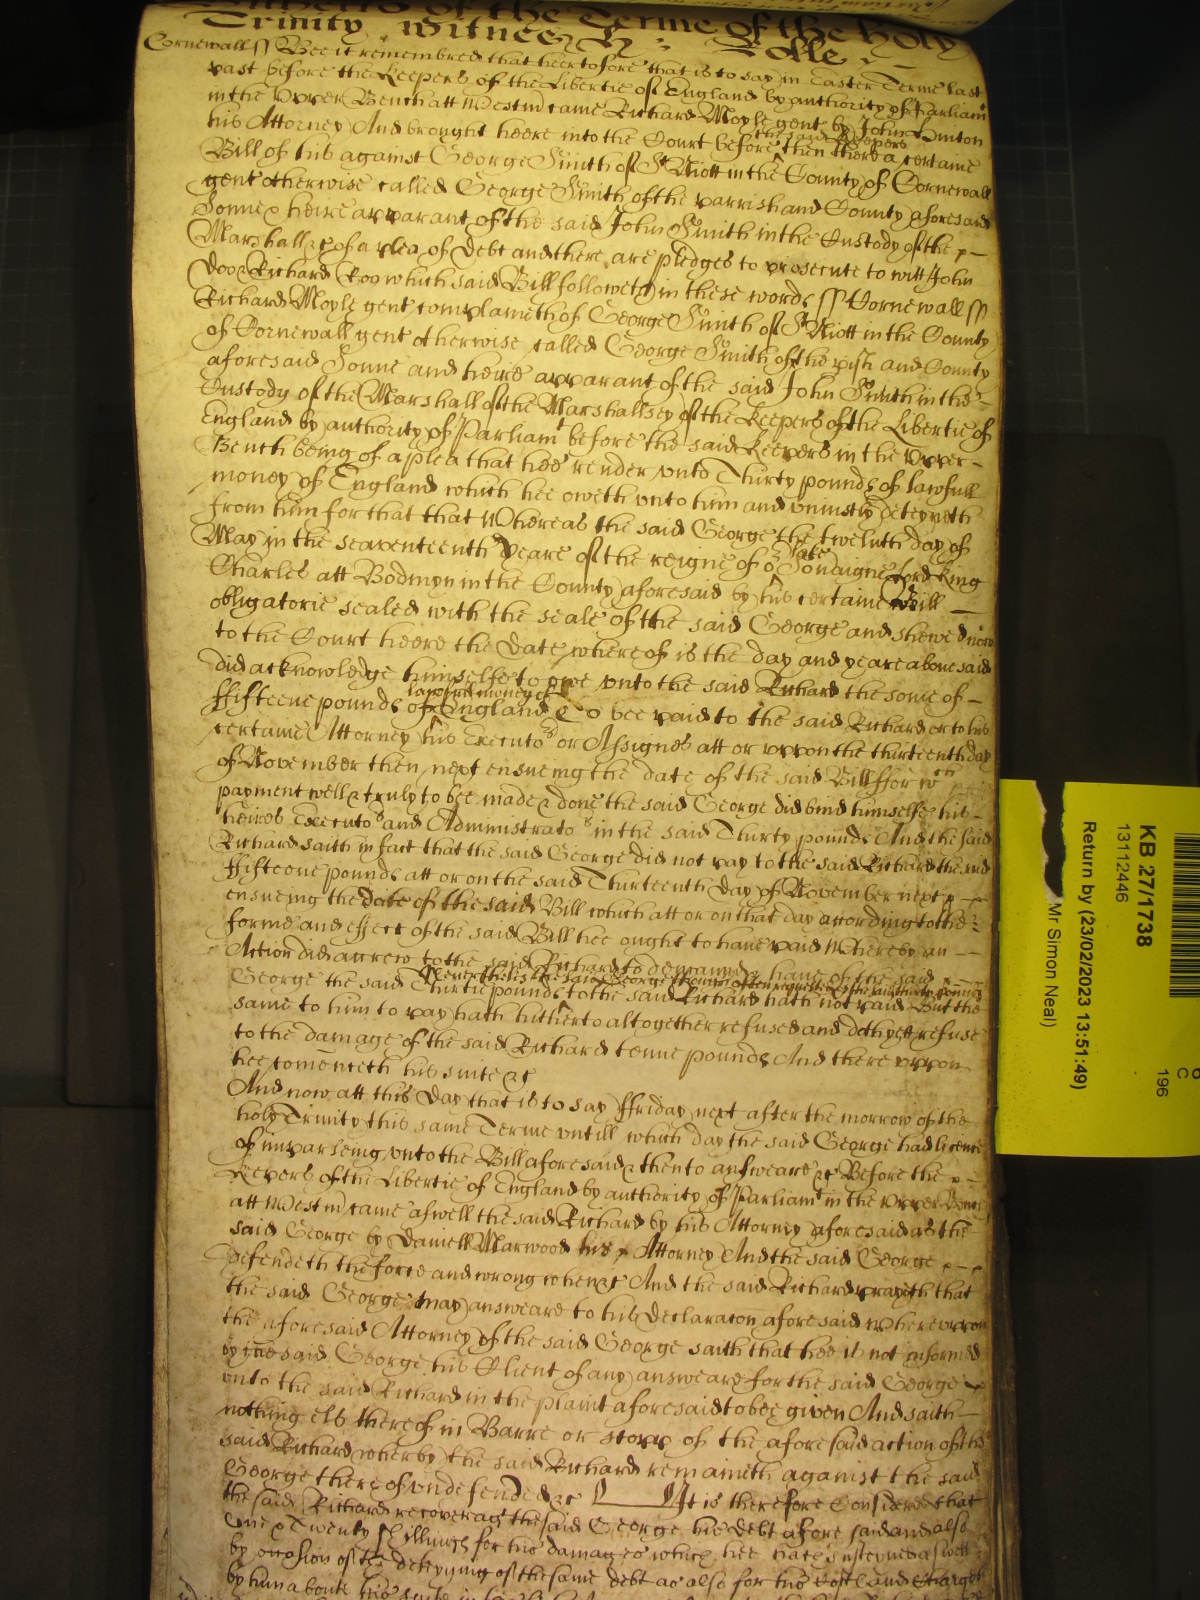 of the Terme of the holy
Trinity witnes Rolle
Cornewall ss Bee it remembred that heertofore that is to say in Easter Terme last
past before the Keepers of the Libertie of England by authority of Parliamt
in the Upper Bench att Westm came Richard Moyle gent by John
his Attorney And brought heere into the Court before the said Keepers then there a certaine
Bill of his against George Smith of St Niott in the County of Cornewall
gent otherwise called George Smith of the parrish and County aforesaid
Sonne & heire apparant of the said John Smith in the Custody of the
Marshall &c of a plea of Debt and there are pledges to prosecute to witt John
Doo & Richard Roo which said Bill followeth in these words ss Cornewall ss
Richard Moyle gent complaineth of George Smith of St Niott in the County
of Cornewall gent otherwise called George Smith of the pish and County
aforesaid Sonne and heire apparant of the said John Smith in the
Custody of the Marshall of the Marshallsey of the Keepers of the Libertie of
England by authority of Parliamt before the said Keepers in the Upper
Bench being of a plea that hee render unto Thirty pounds of lawfull
money of England which hee oweth unto him and uniustly deteyneth
from him for that that Whereas the said George the twelvth day of
May in the seaventeenth Yeare of the reigne of or late Soveraigne Lord King
Charles att Bodmyn in the County aforesaid by his certaine Bill
obligatorie sealed with the seale of the said George and shewed now
to the Court heere the Date whereof is the day and yeare abovesaid
did acknowledge himselfe to owe unto the said Richard the some of
ffifteene pounds of lawfull money of England To bee paid to the said Richard or to his
certaine Attorney his Executors or Assignes att or uppon the thirteenth day
of November then next ensueing the date of the said Bill ffor wch
payment well & truly to bee made & done the said George did bind himselfe his
heires Executors and Administrators in the said Thirty pounds And the said
Richard saith in fact that the said George did not pay to the said Richard the said
ffifteene pounds att or on the said Thirteenth Day of November next
ensueing the date of the said Bill which att or on that day according to the
forme and effect of the said Bill hee ought to have paid Whereby an
Action did accrew to the said Richard to demaund & have of the said
Nevertheles the said George though often requested
George the said Thirtie pounds to the said Richard hath not paid But the
same to him to pay hath hitherto altogether refused and doth yett refuse
to the damage of the said Richard tenne pounds And thereuppon
hee comenceth his suite &c
And now att this Day that is to say ffriday next after the morrow of the
holy Trinity this same Terme untill which day the said George had licence
of imparleing unto the Bill aforesaid & then to answeare &c Before the
Kepers of the Libertie of England by authority of Parliamt in the Upper Bench
att Westm came aswell the said Richard by his Attorney aforesaid as the
said George by Daniell Marwood his Attorney And the said George
defendeth the force and wrong when &c And the said Richard prayeth that
the said George may answeare to his Declaracon aforesaid whereuppon
the aforesaid Attorney of the said George saith that hee is not informed
by the said George his Client of any answeare for the said George
unto the said Richard in the plaint aforesaid to bee given And saith
nothing els thereof in Barre or stopp of the aforesaid action of the
said Richard wherby the said Richard remaineth against the said
George thereof undefended &c It is therefore Considered that
the said Richard recover ag the said George his Debt aforesaid and also
One & Twenty shillings for his damages which hee hath susteyned aswell
by occasion of the deteyning of the same debt as also for his Costs and Charges
by him aboute his suite in
KB 27/1738
13112446
Return by (23/02/2023 13:51:49)
Mr Simon Neal)
C
196